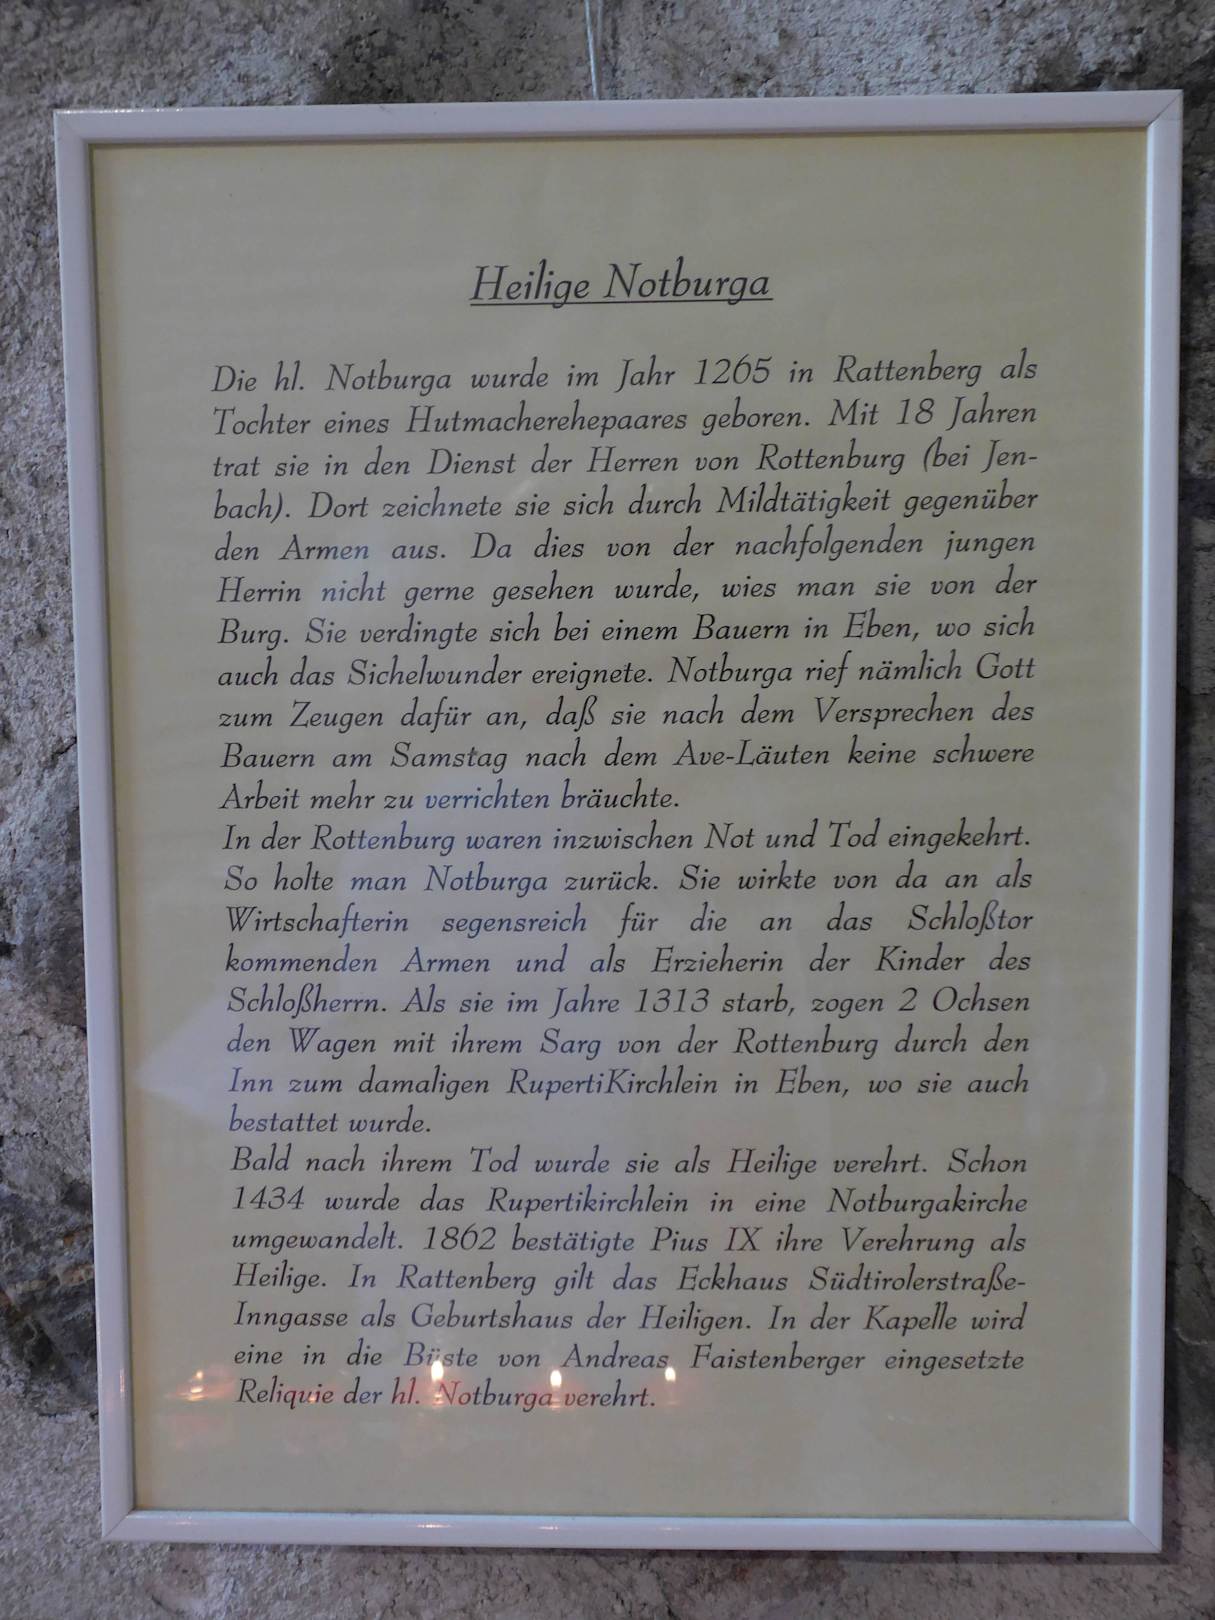 Heilige Notburga
Die hl. Notburga wurde im Jahr 1265 in Rattenberg als
Tochter eines Hutmacherehepaares geboren. Mit 18 Jahren
trat sie in den Dienst der Herren von Rottenburg (bei Jen-
bach). Dort zeichnete sie sich durch Mildtätigkeit gegenüber
den Armen aus. Da dies von der nachfolgenden jungen
Herrin nicht gerne gesehen wurde, wies man sie von der
Burg. Sie verdingte sich bei einem Bauern in Eben, wo sich
auch das Sichelwunder ereignete. Notburga rief nämlich Gott
zum Zeugen dafür an, daß sie nach dem Versprechen des
Bauern am Samstag nach dem Ave-Läuten keine schwere
Arbeit mehr zu verrichten bräuchte.
In der Rottenburg waren inzwischen Not und Tod eingekehrt.
So holte man Notburga zurück. Sie wirkte von da an als
Wirtschafterin segensreich für die an das Schloßtor
kommenden Armen und als Erzieherin der Kinder des
Schloßherrn. Als sie im Jahre 1313 starb, zogen 2 Ochsen
den Wagen mit ihrem Sarg von der Rottenburg durch den
Inn zum damaligen RupertiKirchlein in Eben, wo sie auch
bestattet wurde.
Bald nach ihrem Tod wurde sie als Heilige verehrt. Schon
1434 wurde das Rupertikirchlein in eine Notburgakirche
umgewandelt. 1862 bestätigte Pius IX ihre Verehrung als
Heilige. In Rattenberg gilt das Eckhaus Südtirolerstraße-
Inngasse als Geburtshaus der Heiligen. In der Kapelle wird
eine in die Büste von Andreas Faistenberger eingesetzte
Reliquie der hl. Notburga verehrt.